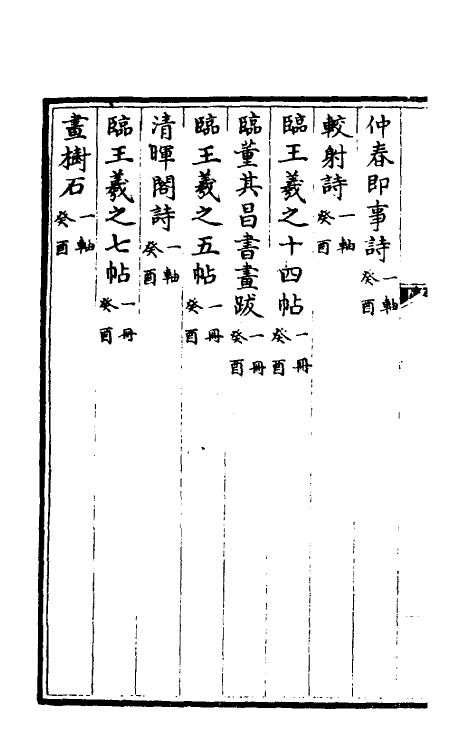 仲春即事詩一軸癸酉
較射詩一軸癸酉
臨王羲之十四帖一冊癸酉
臨董其昌書畫跋一冊癸酉
臨王羲之五帖一冊癸酉
清暉閣詩一軸癸酉
臨王羲之七帖一冊癸酉
畫樹石一軸癸酉